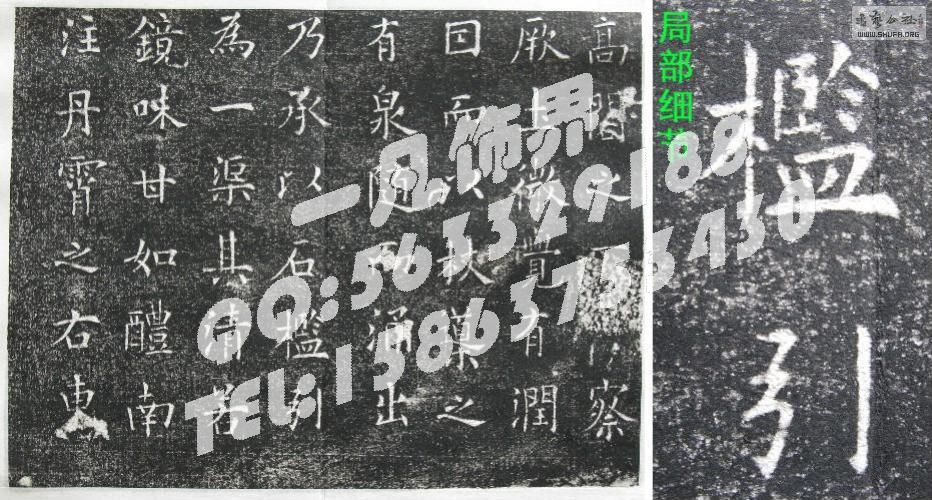 高閣之下察
厥土微覺有潤
因而以杖導之
有泉隨而涌出
乃承以石檻引
為一渠其清若
鏡味甘如醴南
注丹霄之右東
一凡饰界
QQ:563329188
TEL:15863753430
局部细节
檻引
書藝公社
WWW.SHUFA.ORG